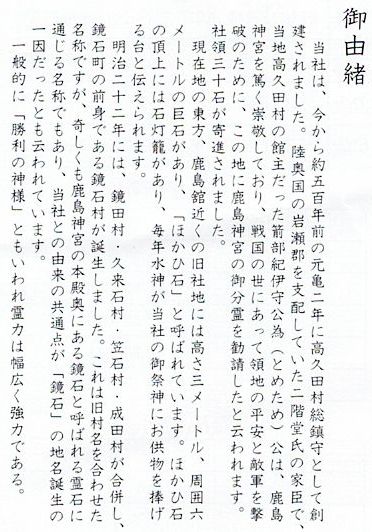 御由緒
当社は、今から約五百年前の元亀二年に高久田村総鎮守として創
建されました。陸奥国の岩瀬郡を支配していた二階堂氏の家臣で、
当地高久田村の館主だった箭部紀伊守公為（とめため）公は、鹿島
神宮を篤く崇敬しており、戦国の世にあって領地の平安と敵軍を撃
破のために、この地に鹿島神宮の御分霊を勧請したと云われます。
社領三十石が寄進されました。
現在地の東方、鹿島館近くの旧社地には高さ三メートル、周囲六
メートルの巨石があり、「ほかひ石」と呼ばれています。ほかひ石
の頂上には石灯籠があり、毎年水神が当社の御祭神にお供物を捧げ
る台と伝えられます。
明治二十二年には、鏡田村・久来石村・笠石村・成田村が合併し、
鏡石町の前身である鏡石村が誕生しました。これは旧村名を合わせた
名称ですが、奇しくも鹿島神宮の本殿奥にある鏡石と呼ばれる霊石に
通じる名称でもあり、当社との由来の共通点が「鏡石」の地名誕生の
一因だったとも云われています。
一般的に「勝利の神様」ともいわれ霊力は幅広く強力である。